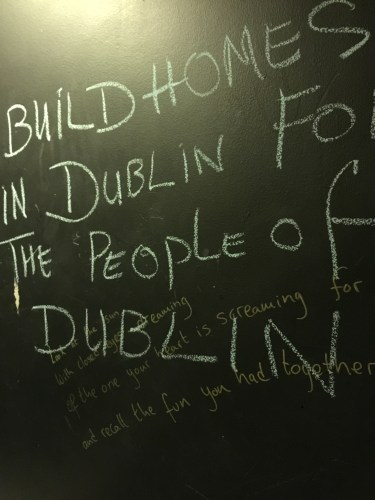 BUILD HOMES
IN DUBLIN FO
THE PEOPLE Of
DUBLIN
at the sun
with closed eyes dreaming
of the one your heart is screaming for
and recall the fun you had together